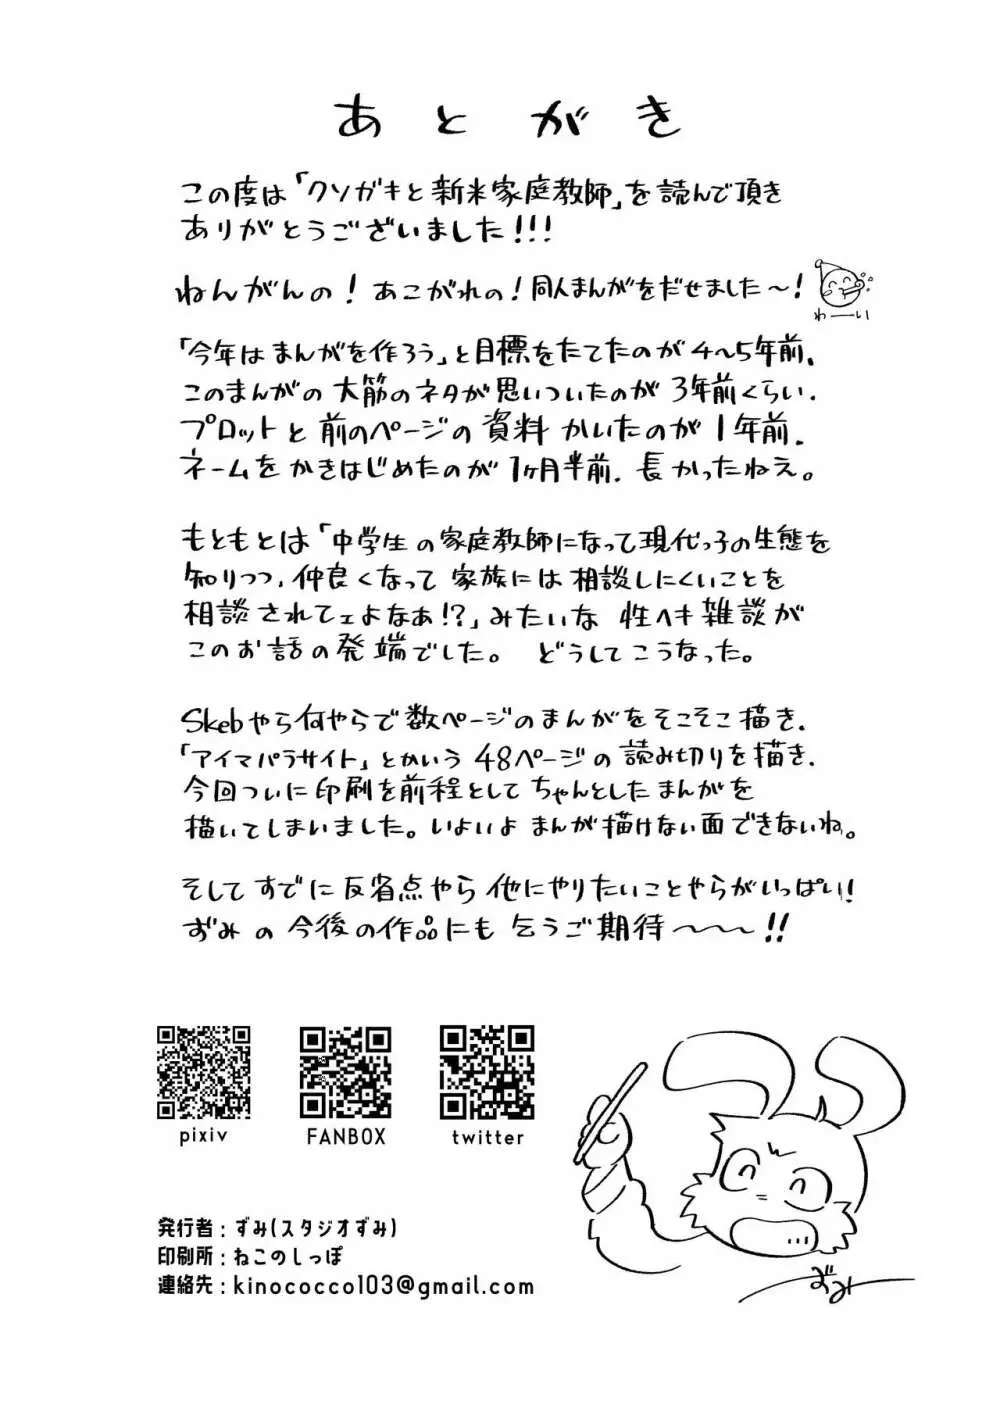 あとがき
この度は「クソガキと新米家庭教師」を読んで頂き
ありがとうございました!!!
ねんがんの!あこがれの!同人まんがをだせました〜!
わーい
「今年はまんがを作ろう」と目標をたてたのが4〜5年前.
このまんがの大筋のネタが思いついたのが3年前くらい.
プロットと前のページの資料かいたのが1年前.
ネームをかきはじめたのが1ヶ月半前.長かったねえ。
もともとは「中学生の家庭教師になって現代っ子の生態を
知りつつ、仲良くなって家族には相談しにくいことを
相談されてェよなぁ!?」みたいな性ヘキ雑談が
このお話の発端でした。どうしてこうなった。
Skebやら何やらで数ページのまんがをそこそこ描き.
「アイマパラサイト」とかいう48ページの読み切りを描き.
今回ついに印刷を前程としてちゃんとしたまんがを
描いてしまいました。いよいよまんが描けない面できないね。
そしてすでに反省点やら他にやりたいことやらがいっぱい!
ずみの今後の作品にも乞うご期待〜〜〜!!
pixiv FANBOX twitter
発行者:ずみ(スタジオずみ)
印刷所:ねこのしっぽ
連絡先:kinococco103@gmail.com
ずみ